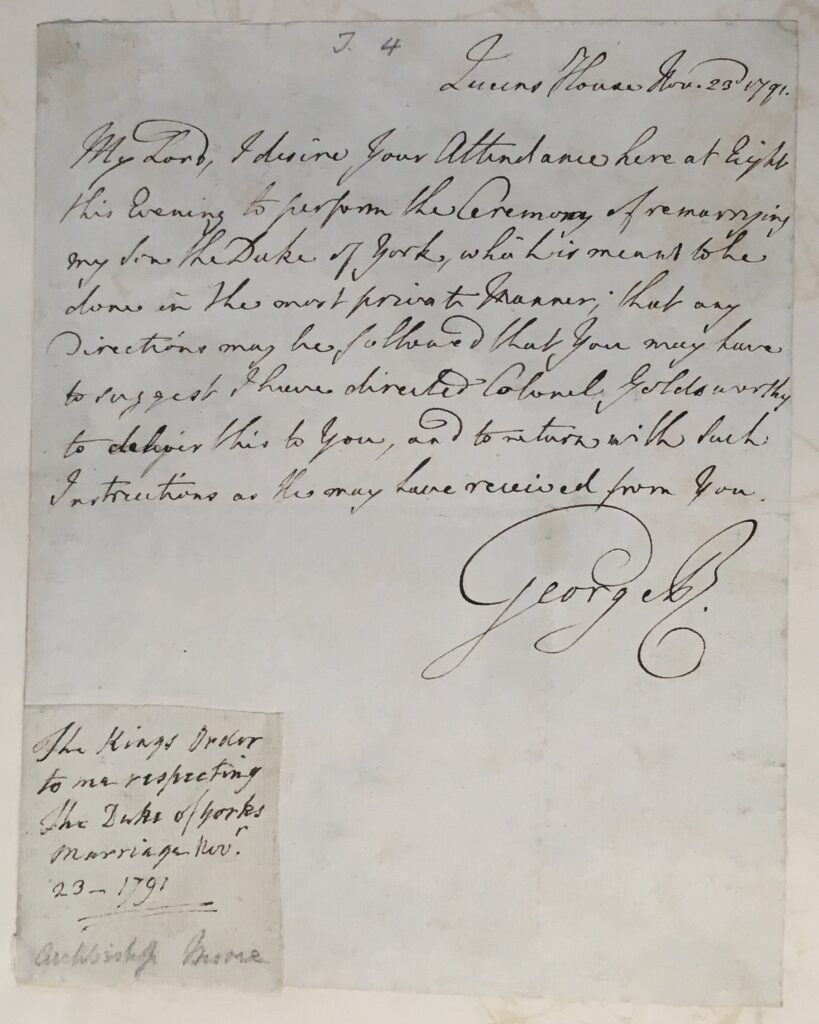 J. 4
Queens House Nov. 23d 1791.
My Lord, I desire Your Attendance here at Eight
this Evening to perform the Ceremony of remarrying
my Son the Duke of York, which is meant to be
done in the most private Manner; that any
Directions may be followed that You may have
to suggest I have directed Colonel Goldsworthy
to deliver this to You, and to return with such
Instructions as He may have received from You.
George R.
The Kings Order
to me respecting
the Duke of Yorks
Marriage Novr.
23 - 1791
Archbishop Moore